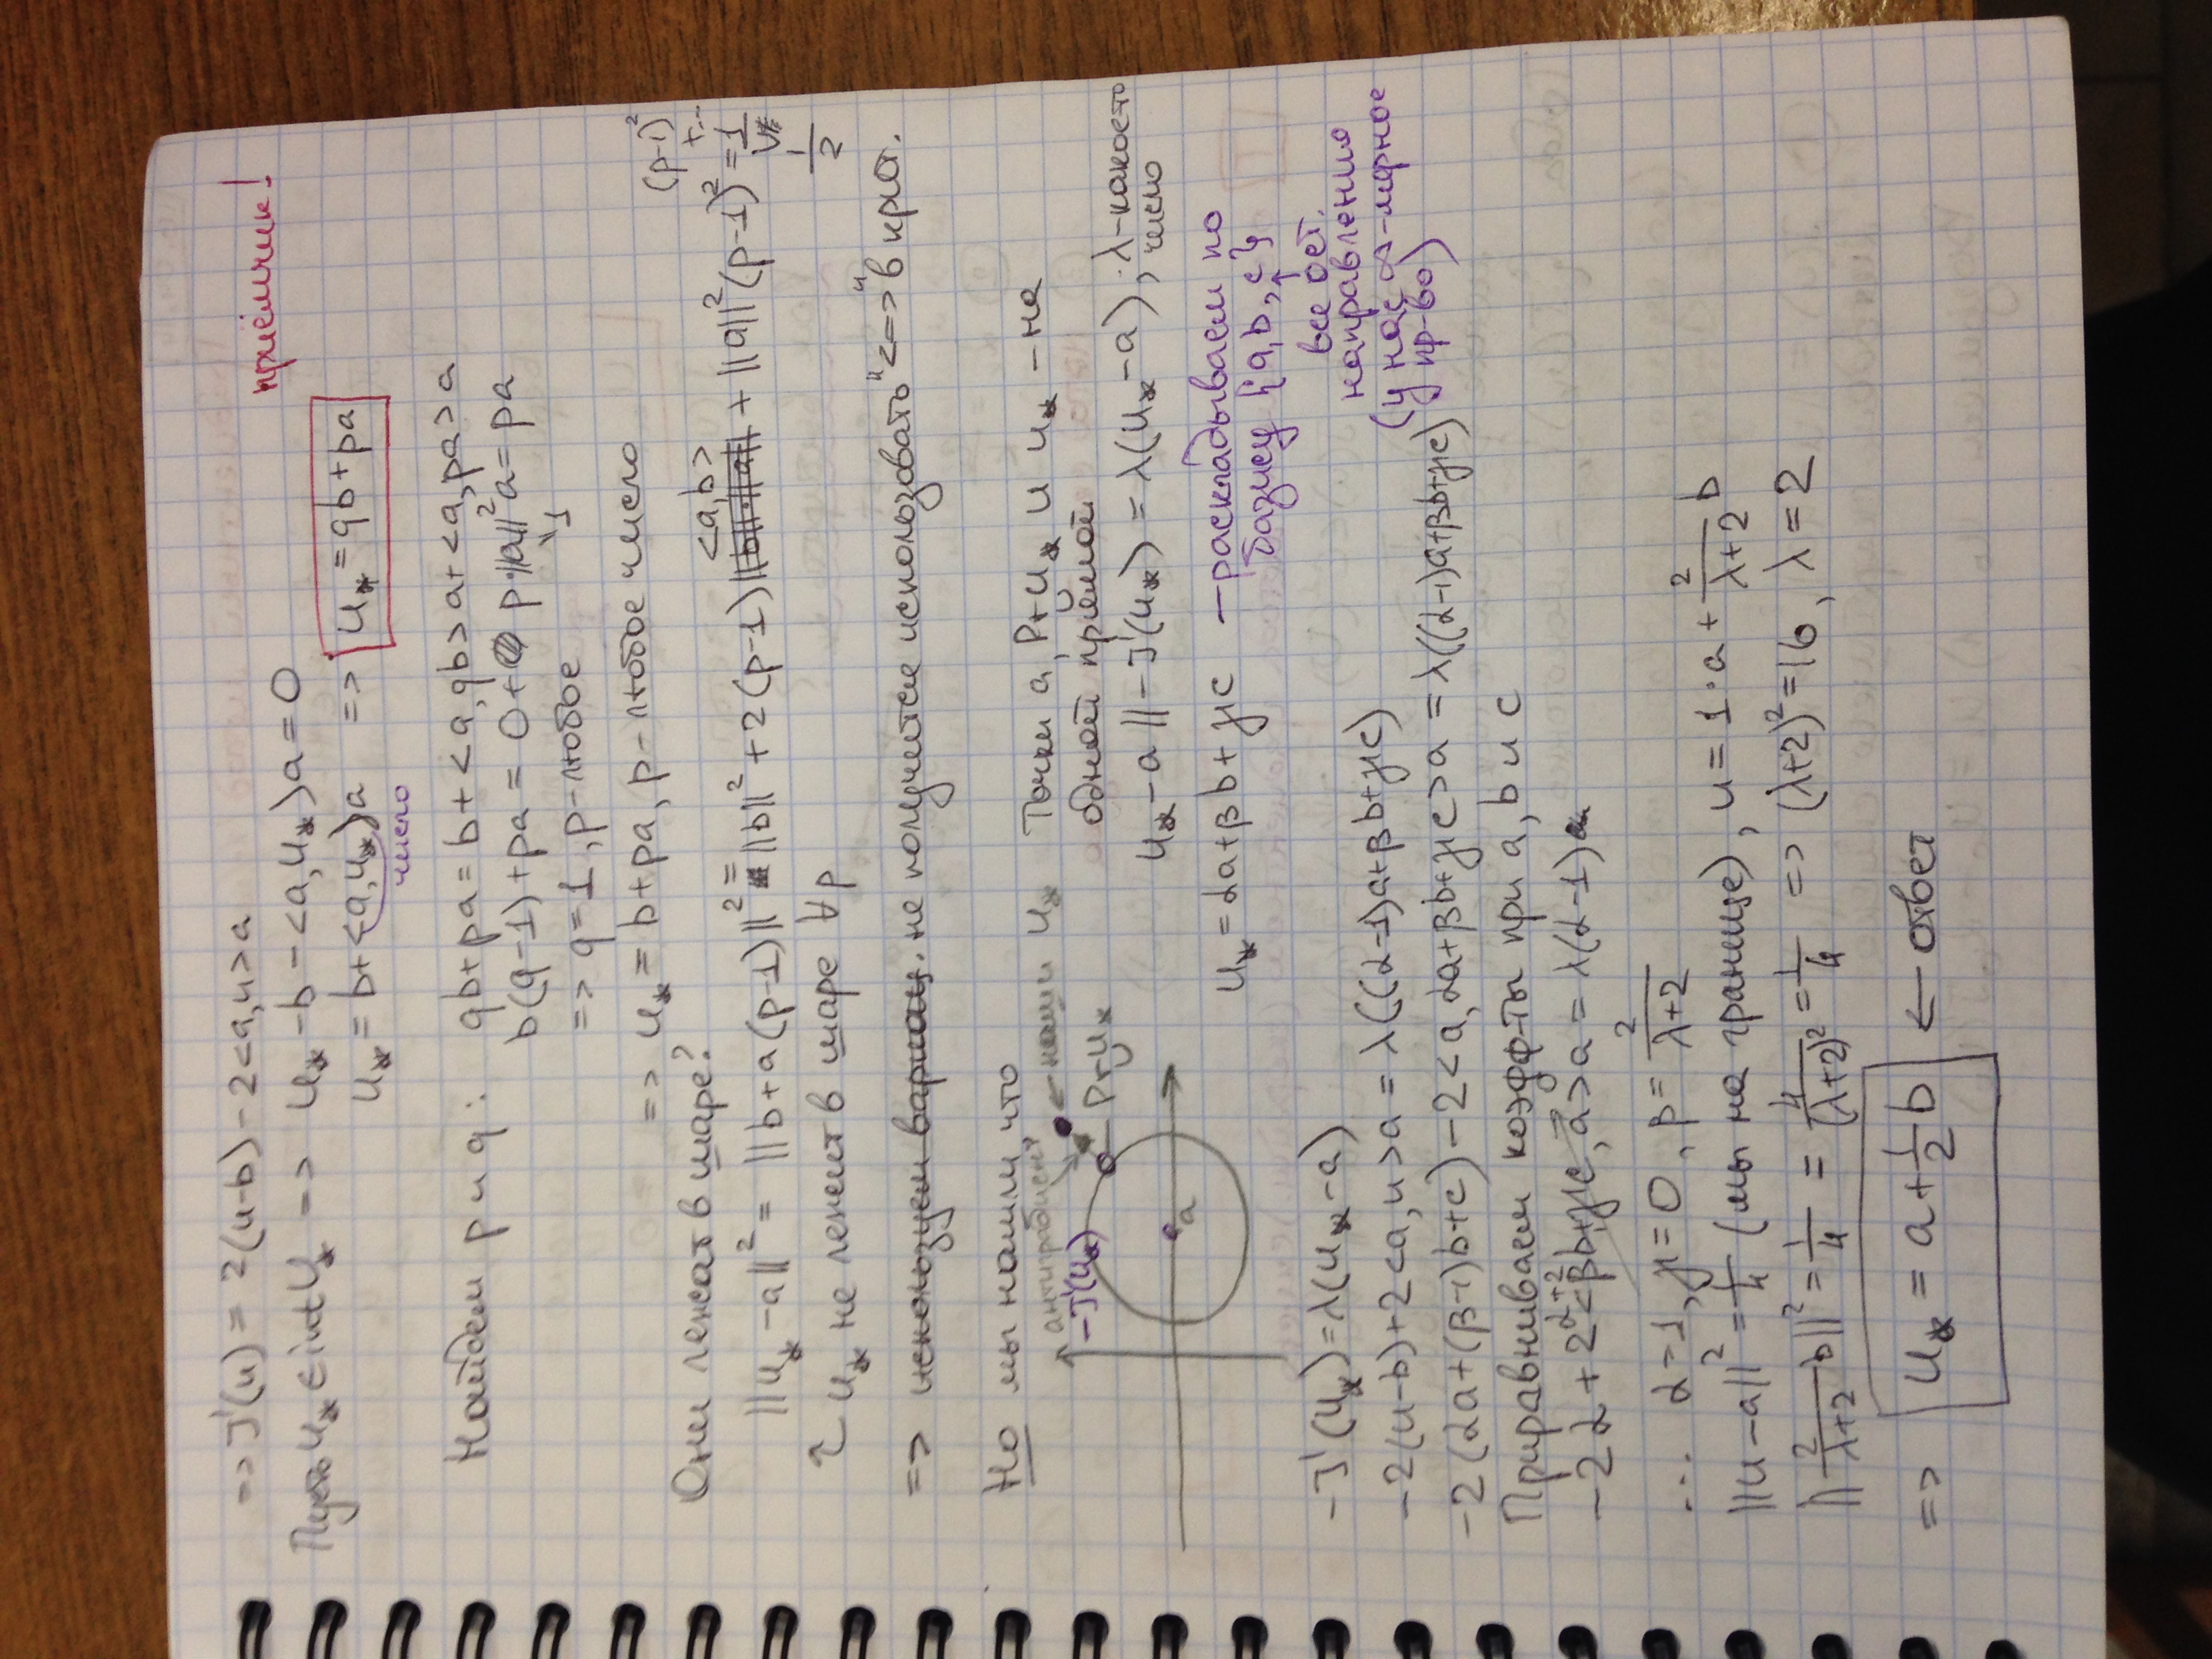 => J'(u) = 2(u-b) - 2<a,u>a
Пусть u* ∈ int U* => u* - b - <a, u*>a = 0
приёмчик!
u* = b + <a, u*>a => u* = qb + pa
число
Найдем p и q: qb + pa = b + <a, qb>a + <a, pa>a
b(q-1) + pa = 0 + p·||a||²a = pa
1
=> q = 1, p - любое
=> u* = b + pa, p - любое число
Они лежат в шаре?
||u* - a||² = ||b + a(p-1)||² = ||b||² + 2(p-1)<a,b> + ||a||²(p-1)² = 1
(p-1)²
+...
1
2
u* не лежит в шаре ∀p
=> не получится использовать "<=>" в крит.
Но мы нашли, что
антиградиент
-J'(u*)
наши u*
Pr u*
a
Точки a, P+u* и u* - на
одной прямой
u* - a || -J'(u*) = λ(u* - a), λ - какое-то
число
u* = αa + βb + μc - раскладываем по
базису {a, b, c}
все ост.
направления
(у нас ∞-мерное
пр-во)
-J'(u*) = λ(u* - a)
-2(u-b) + 2<a,u>a = λ((α-1)a + βb + μc)
-2(αa + (β-1)b + c) - 2<a, αa + βb + μc>a = λ((α-1)a + βb + μc)
Приравниваем коэфф-ты при a, b и c
-2α + 2<βb + μc, a>a = λ(α-1)
∴ α = 1, μ = 0, β = 2/(λ+2)
||u-a||² = 1/4 (мы на границе), u = 1·a + 2/(λ+2) b
||2/(λ+2) b||² = 1/4 = 4/(λ+2)² = 1/4 => (λ+2)² = 16, λ = 2
=> u* = a + 1/2 b ← ответ